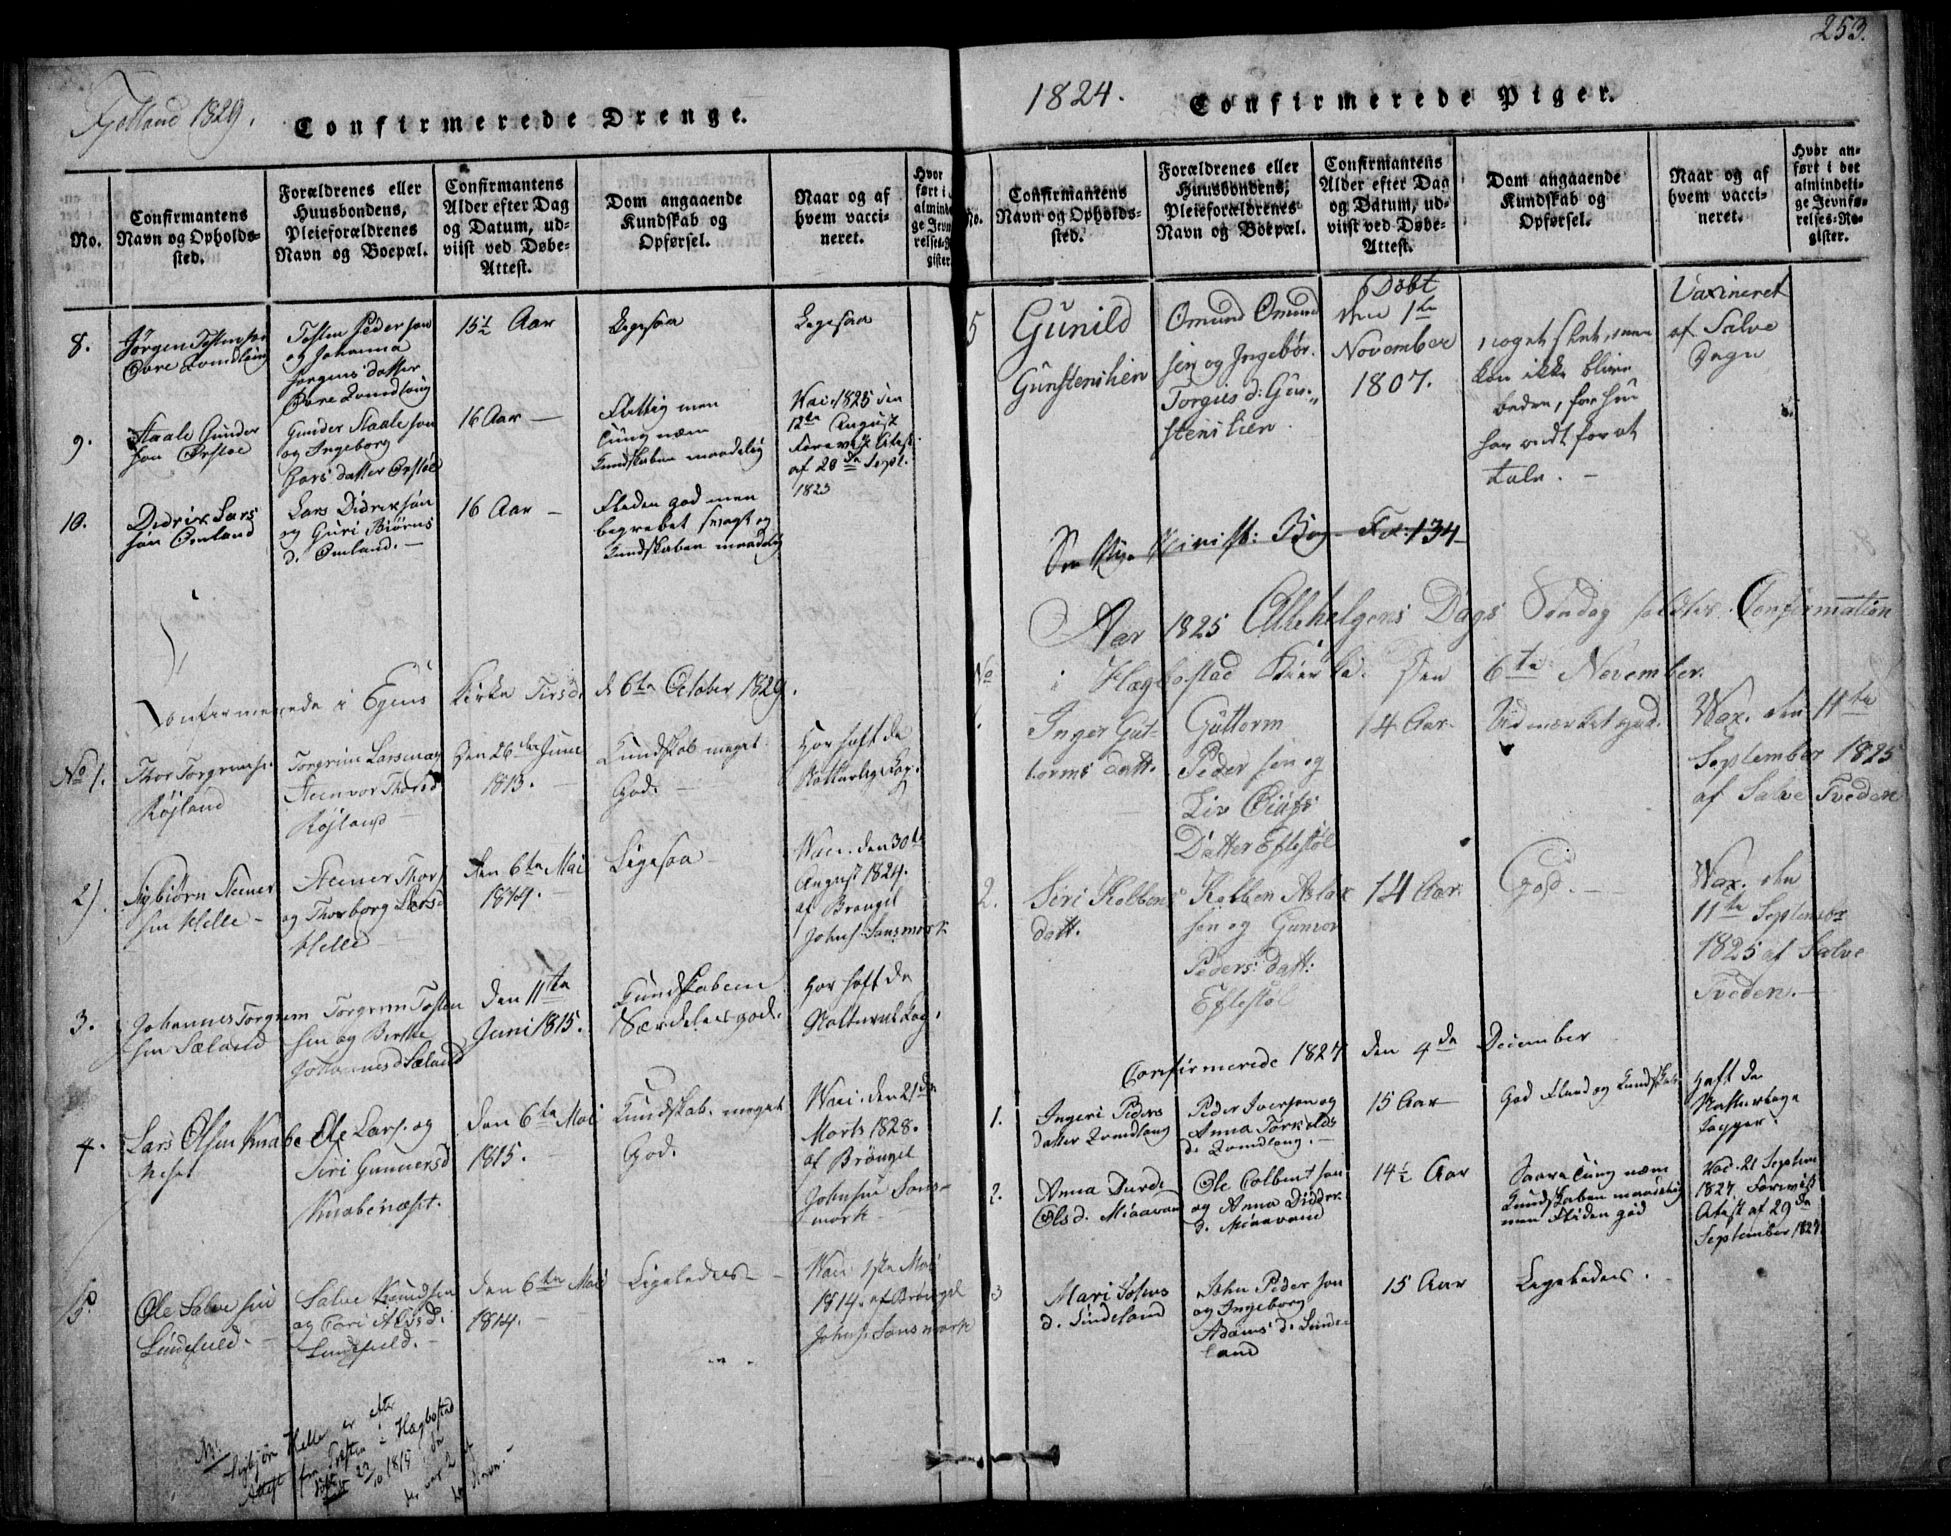 Fjotland 1829.
Confirmerede Drenge.
No.
Confirmantens
Navn og Opholds-
sted.
Forældrenes eller
Huusbondens,
Pleieforældrenes
Navn og Boepæl.
Confirmantens
Alder efter Dag
og Datum, ud-
viist ved Døbe-
Attest.
Dom angaaende
Kundskab og
Opførsel.
Naar og af
hvem vacci-
neret.
Hvor
ført i
alminde
ge Jevn
relses-
gister
8.
Jørgen Tostensen
Øvre Qvindlong
Tosten Peder søn
og Johanna
Jørgens datter
Øvre
15½ Aar
Ligesaa
Ligesaa
9.
Staale Gunder
søn
Gunder Staale søn
og Ingeborg
Lars datter
16 Aar —
Flittig men
tung nem
Kundskaben maadelig
Vac. 1825 den
12te August
Attest
af 28de Sept.
1825
10.
Didrix Lars
søn Omland
Lars Didrix søn
og Guri Biørns
d. Omland. —
16 Aar —
Fliden god men
begrebet svagt og
Kundskaben maadelig
Confirmerede i Egens Kirke Tirsd. d 6te October 1829.
No 1.
Thor Torgrimsen
Røjland
Torgrim Larsen og
Steenvor Thorsd
Røjland —
Den 26de Juni
1813. —
Kundskab meget
God. —
Har haft de
Naturlige Kop.
2).
Sigbiørn Steener
sen Helle —
Steener Thors
og Thorborg Larsd
Helle —
den 6te Mai
1814. —
Ligesaa —
Vac. den 30te
August 1824.
af Brøngel
Johns. Sansmork
3.
Johannes Torgrim
sen Sæland
Torgrim Tosten
sen og Berthe
Johannesd Sæland
Den 11te
Juni 1815.
Kundskaben
Særdeles god.
Har haft de
Naturl. Kop.
4.
Lars Olsen Knabe
næset
Ole Lars. og
Siri Gunnersd
Knabenæset.
den 6te Mai
1815. —
Kundskab. meget
God.
Vac. den 21de
Marts 1828.
af Brøngel
Johnsen Sans-
mork —
5.
Ole Salve sen
Lindefield. —
Salve Knudsen
og Tori Alfsd.
Lindefield. —
den 6te Mai
1814. —
Ligeledes —
Vac. Mai
1814. af Brøngel
Johns. Sansmork
Sigbjørn Helle er efter
Attest fra Præsten i Hægbostad
døbt 22/10 1815, da
der var 2
253.
1824.
Confirmerede Piger.
No.
Confirmantens
Navn og Opholds-
sted.
Forældrenes eller
Huusbondens,
Pleieforældrenes
Navn og Boepæl.
Confirmantens
Alder efter Dag
og Datum, ud-
viist ved Døbe-
Attest.
Dom angaaende
Kundskab og
Opførsel.
Naar og af
hvem vacci-
neret.
Hvor an-
ført i det
almindeli-
ge Jevnfø-
relses-Re-
gister.
5
Gunild
Gunstenslien
Omund Omund
sen og Ingebor.
Torgus d: Gun-
stenslien.
Døbt
den 1te
November
1807.
noget slet, men
kan ikke blive
bedre, for hun
har ondt for at
tale. —
Vaxineret
af Salve
Minist: Bog Fol. 134
Aar 1825 Allehelgens Dags Søndag holdtes Confirmation
No i Hægbostad Kierke. den 6te November.
1.
Inger Gut-
torms datt.
Guttorm
Peder sen og
Liv Olufs
Datter Eftestøl
14 Aar.
Vidmærket god.
Vax. den 11te
September 1825
af Salve Tveden
2.
Siri Kolbens
datt.
Kolben Aslax
sen og Gunvor
Peders: datt:
Eftestøl
14 Aar.
God. —
Vax. den
11te Septembr
1825 af Salve
Tveden. —
Confirmerede 1827 den 4de December
1.
Ingeri Peders
datter
Peder Iversen og
Anna Torkelds
d.
15 Aar —
God Flid og Kundskab
Haft de
Naturlige
Kopper.
2.
Anna Durde
Olsd. Miaavand
Ole Colbent søn
og Anna Didder
d. Miaavand
14½ Aar
Saare tung nem
Kundskaben maadelig
men Fliden god
Vac. 21 Septem
1827. Forevist
Atest af 29de
September 1827.
3
Mari Johns
d. Sindeland
John Peder søn
og Ingeborg
Adams d. Sinde
land
15 Aar
Ligeledes.